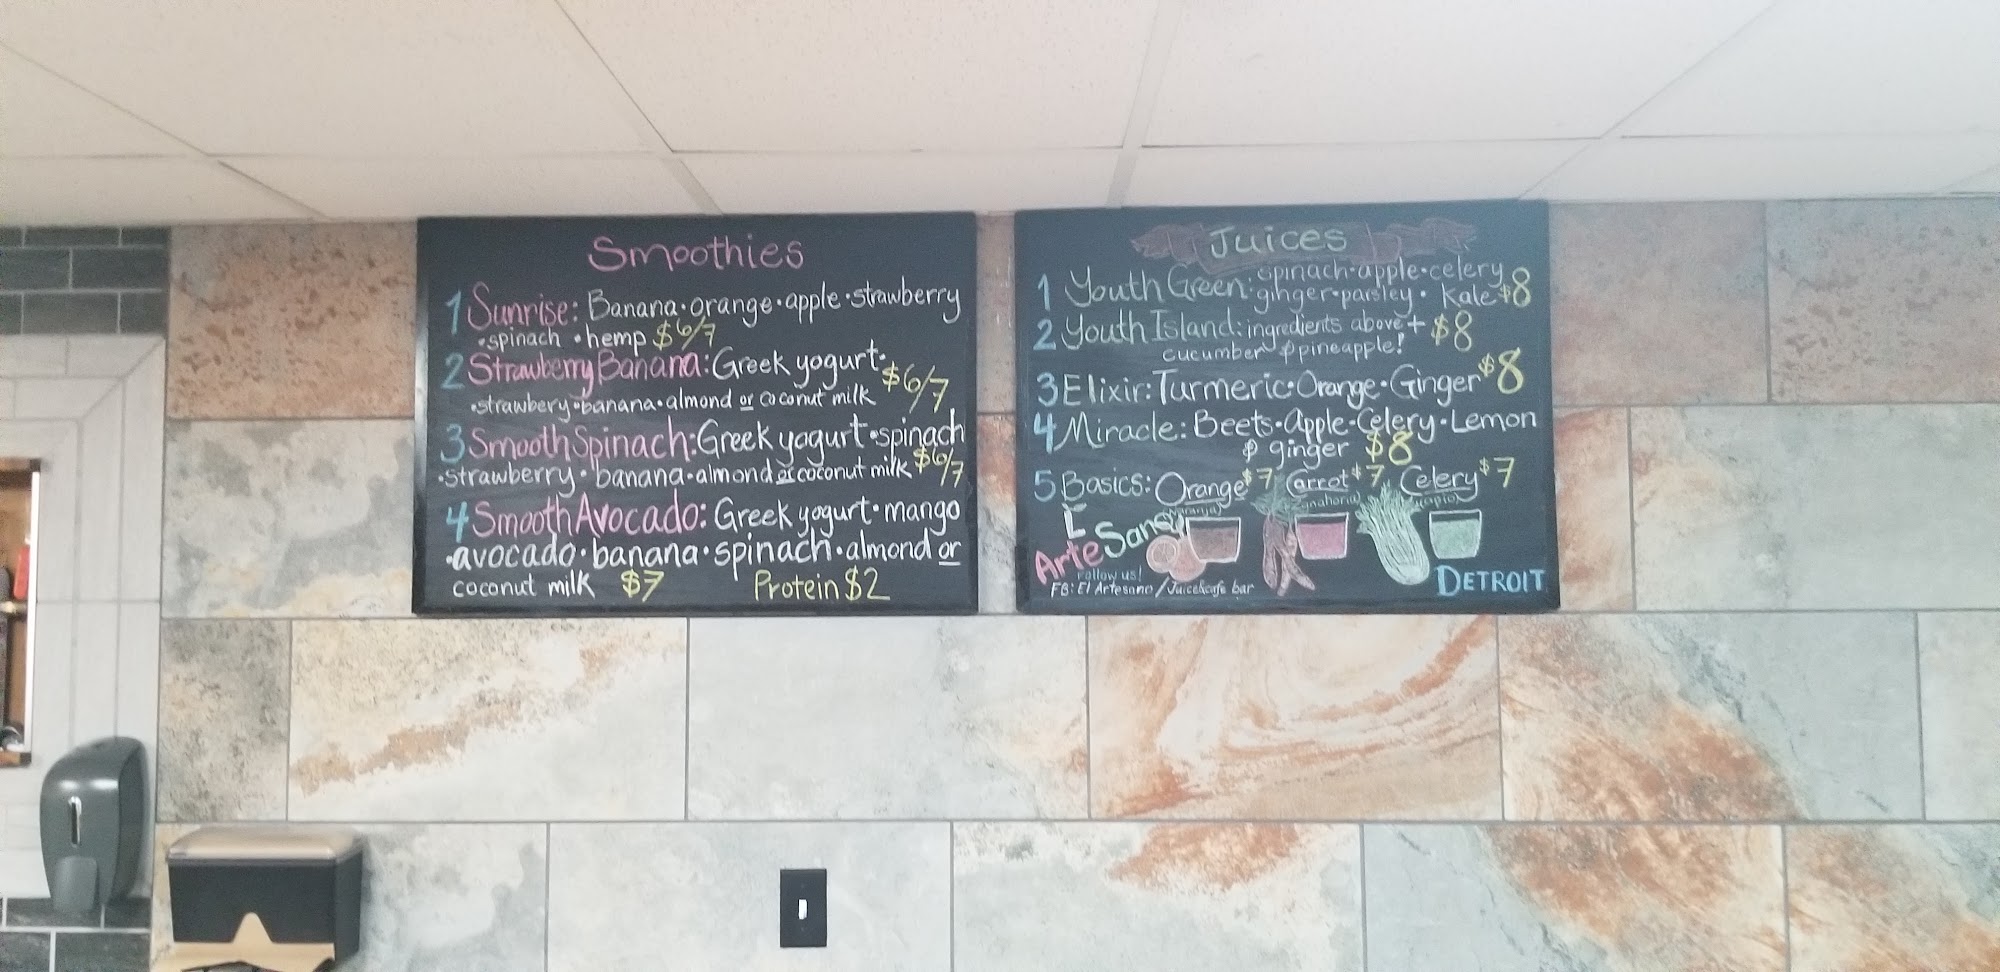 Smoothies
1 Sunrise: Banana•orange•apple•strawberry
•spinach •hemp $6/7
2 Strawberry Banana: Greek yogurt•
•strawbery•banana•almond or coconut milk $6/7
3 Smooth Spinach: Greek yogurt•spinach
•strawberry•banana•almond or coconut milk $6/7
4 Smooth Avocado: Greek yogurt•mango
•avocado•banana•spinach•almond or
coconut milk $7 Protein $2
Juices
1 Youth Green: spinach•apple•celery
ginger•parsley• Kale $8
2 Youth Island: ingredients above + $8
cucumber & pineapple!
3 Elixir: Turmeric•Orange•Ginger $8
4 Miracle: Beets•Apple•Celery•Lemon
& ginger $8
5 Basics: Orange $7 Carrot $7 Celery $7
(naranja) (zanahoria) (apio)
ArteSano
Follow us!
FB: El Artesano/Juice&cafe bar
DETROIT